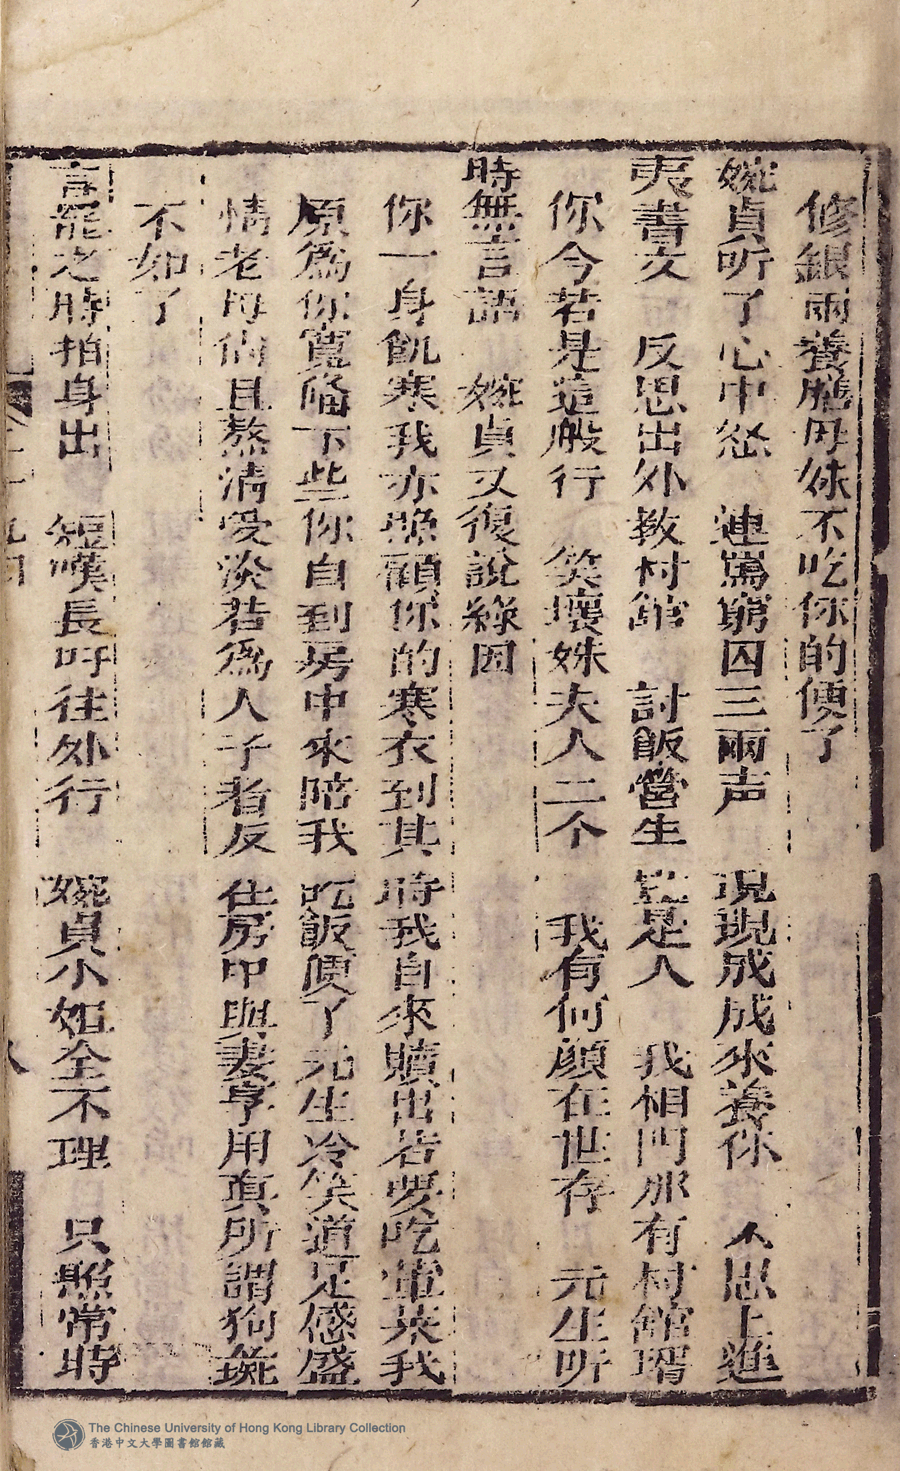 修銀兩養膳母妹不吃你的便了
婉貞听了心中怒　連罵窮囚三兩声　現現成成來養你　不思上進
夷書文　反思出外教村舘　討飯營生豈是人　我相門那有村舘壻
你今若是這般行　笑壞姝夫人二个　我有何顏在世存　元生听
時無言語　婉貞又復說緣因
你一身飢寒我亦照顧你的寒衣到其時我自來贖出若要吃葷菜我
原爲你寬俻下些你自到房中來陪我吃飯便了元生冷笑道足感盛
情老母尙且熬清受淡若爲人子者反住房中與妻享用真所謂狗彘
不如了
言罷之時抽身出　短嘆長吁往外行　婉貞小姐全不理　只照常時
The Chinese University of Hong Kong Library Collection
香港中文大學圖書館館藏